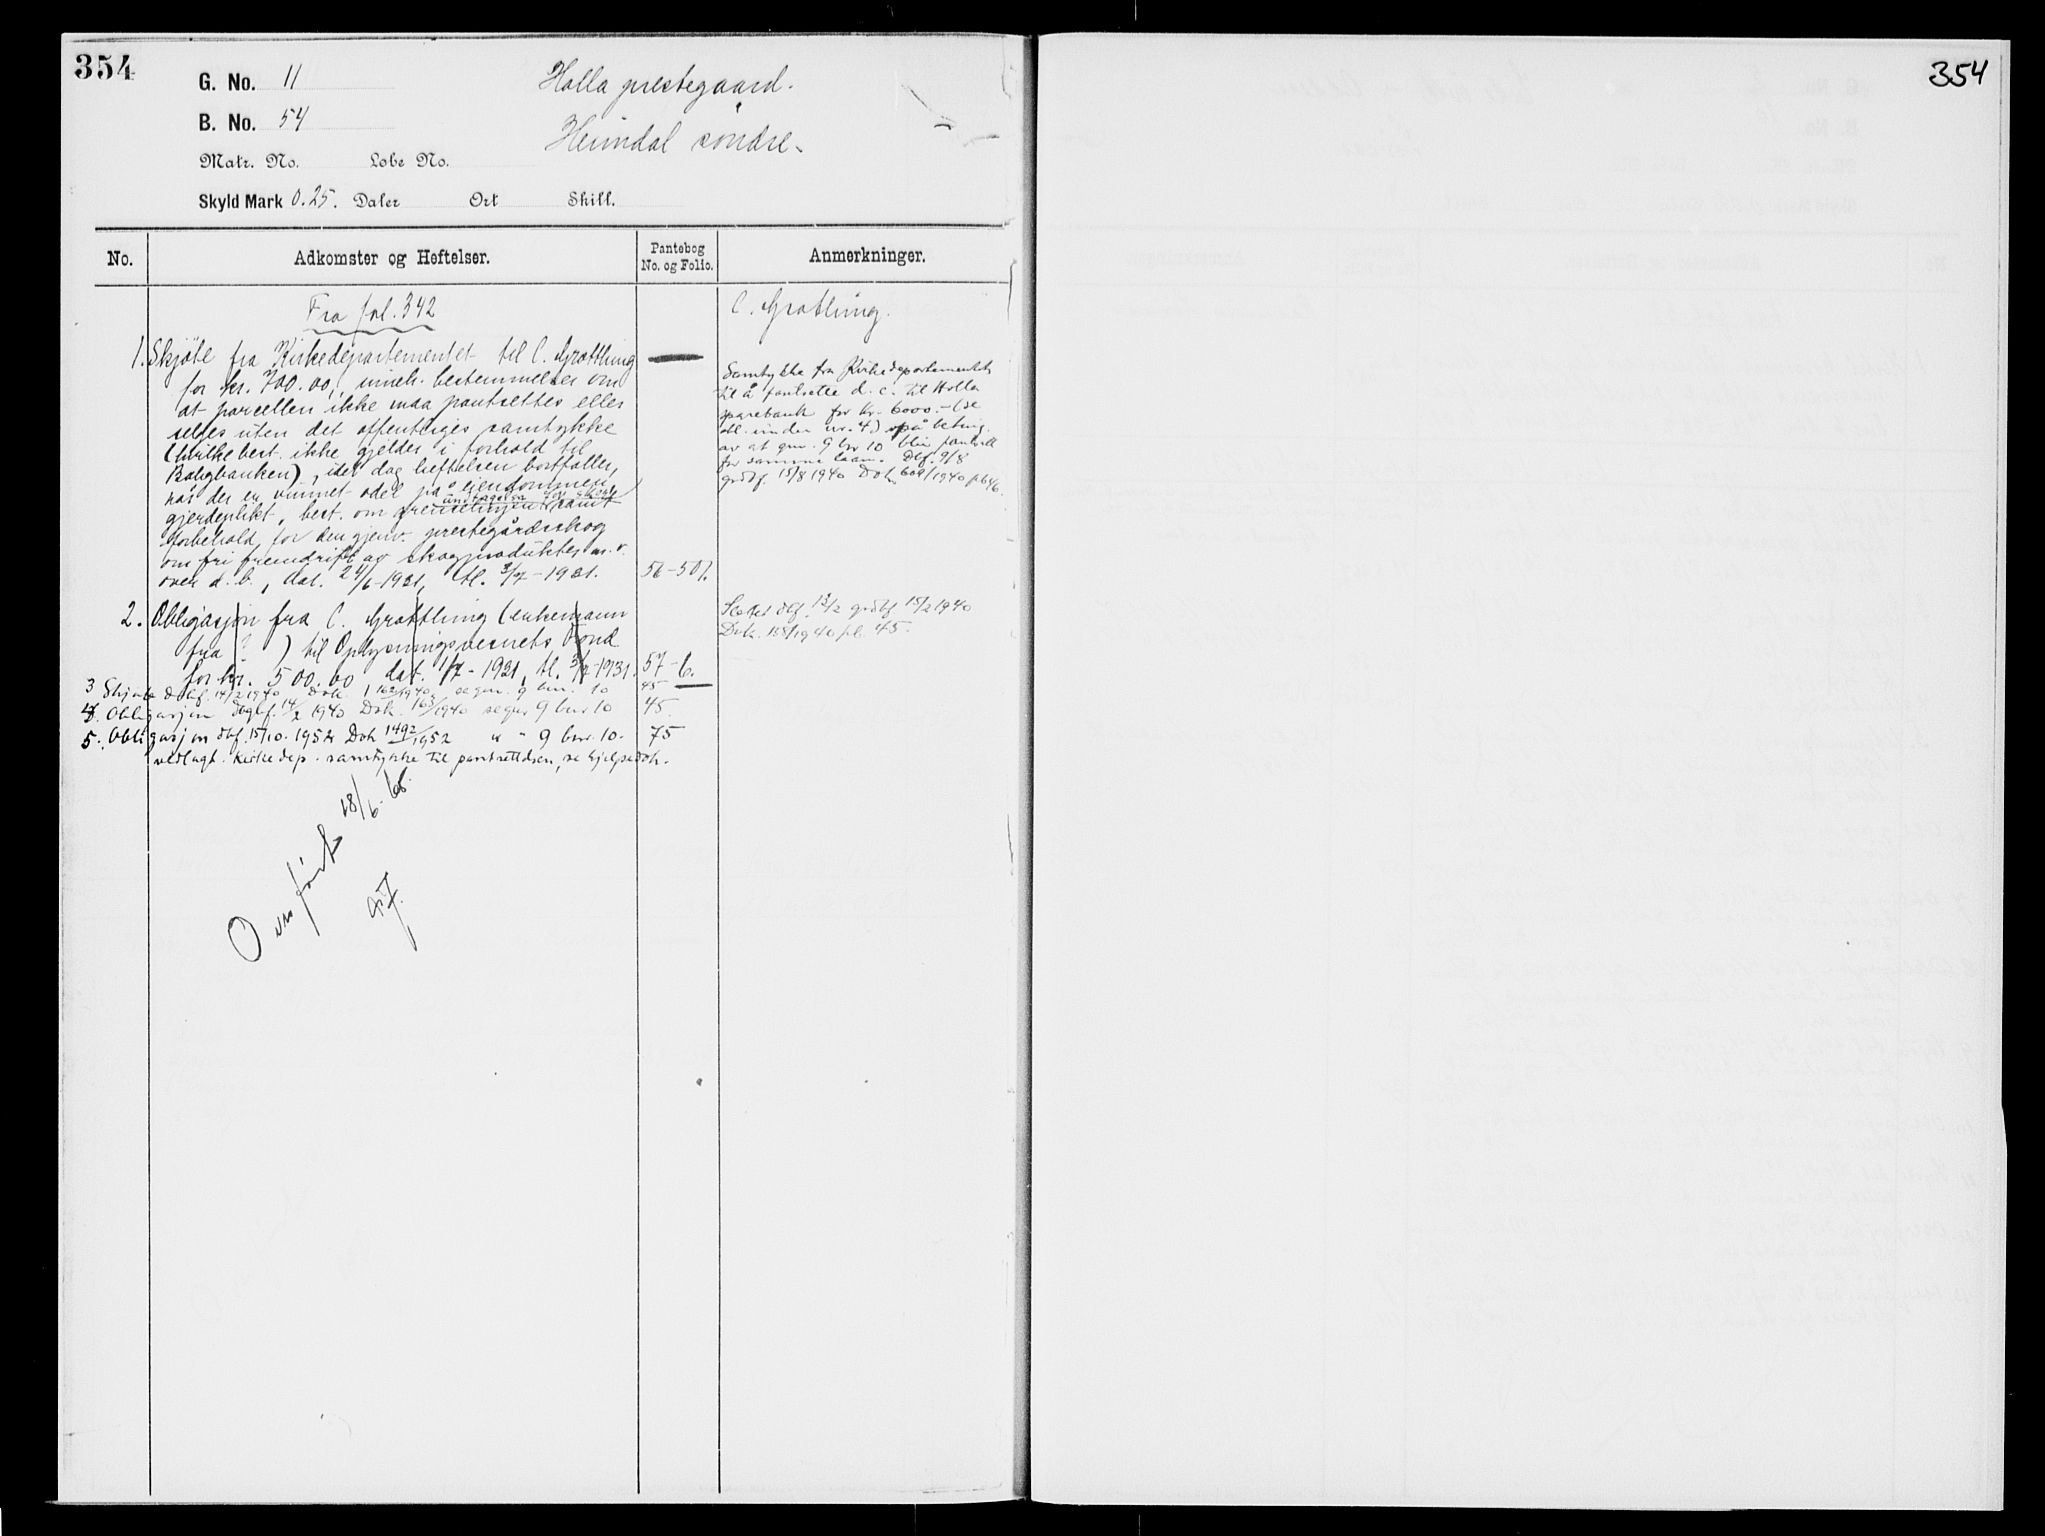 354
G. No. 11
Holla prestegaard.
B. No. 54
Heimdal søndre.
Matr. No. Løbe No.
Skyld Mark 0.25. Daler Ort Skill.
No. Adkomster og Heftelser. Pantebog No. og Folio. Anmerkninger.
Fra fol. 342
C. Grotthing.
1. Skjøte fra Kirkedepartementet til C. Grotthing
for kr. 700.00, inneh. bestemmelser om
at parcellen ikke maa pantsettes eller
selges uten det offentliges samtykke
(hvilke best. ikke gjelder i forhold til
Boligbanken), idet dog heftelsen bortfaller,
når der er vunnet odel på eiendommen,
gjerdeplikt, best. om
forbehold for den gjenv. prestegårdsskog
om fri fremdrift av skogprodukter m.v.
over d.b., dat. 24/6-1931, tl. 3/7-1931. 56-501.
Samtykke fra Kirkedepartementet
til å pantsette d.e. til Holla
sparebank for kr. 6000.- (se
obl. under nr. 4) på beting.
av at gnr. 9 bnr 10 blir pantsatt
for samme laan. Def. 9/8
grdbf 15/8 1940 Dok 609/1940 p646.
2. Obligasjon fra C. Grotthing (enkemann
fra ? ) til Oplysningsvesnets Fond
for kr. 500.00 dat. 1/7-1931, tl. 3/7-1931. 57-6.
Slettet dbf. 13/2 grdbf 15/2 1940
Dok. 158/1940 pl. 45.
3 Skjøte dabf. 14/2 1940 Dok. 162/1940, se gnr. 9 bnr. 10 45
4. Obligasjon dagbf. 14/2 1940 Dok. 163/1940 se gnr 9 bnr 10 45.
5. Obligasjon dbf. 15/10-1952 Dok 1492/1952 " " 9 bnr. 10. 75
vedlagt Kirkedep. samtykke til pantsettelsen, se hjelpedok.
Overført 28/6-66
354